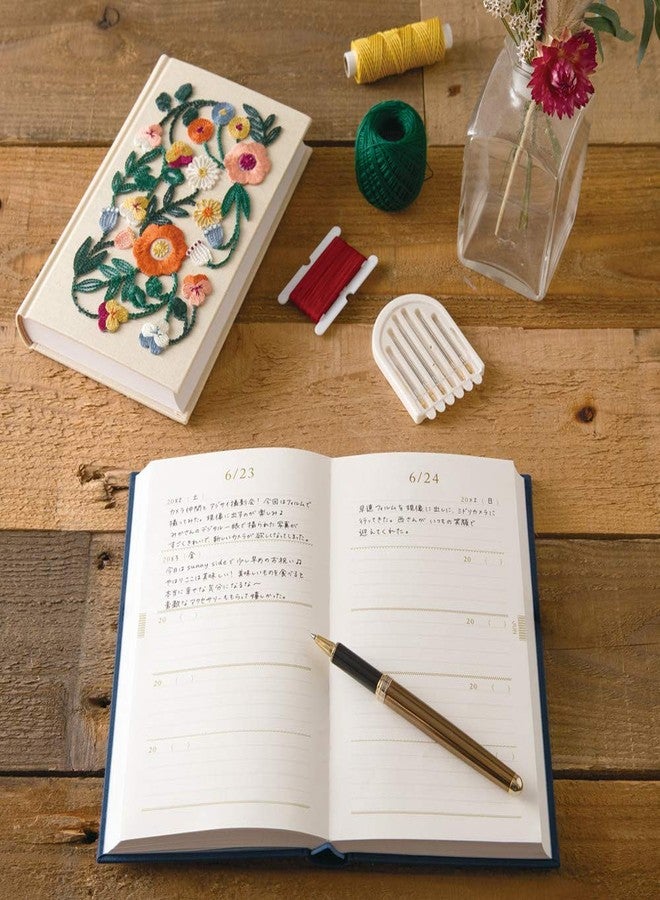 6/23
20x2 (土)
カメラ仲間とアジサイ撮影会！今回はフィルムで
撮ってみた。現像に出すのが楽しみ。
みかさんのデジタル一眼で撮られた写真が
すごくきれいで、新しいカメラが欲しくなってしまった。
20x3 (金)
今日はsunny sideで少し早めのお祝い♫
やはりここは美味しい！美味しいものを食べると
本当に幸せな気分になるな〜
素敵なアクセサリーももらって嬉しかった。
20 ( )
20 ( )
20 ( )
6/24
20x2 (日)
早速フィルムを現像に出しに、ミドリカメラに
行ってきた。西さんがいつもの笑顔で
迎えてくれた。
20 ( )
20 ( )
20 ( )
JUN